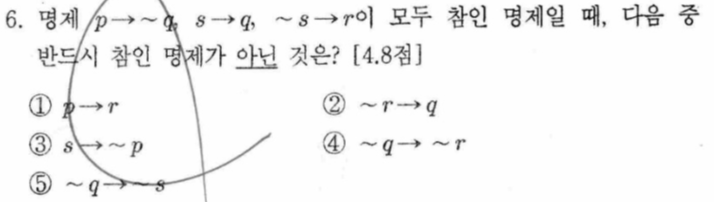 6. 명제 p→~q, s→q, ~s→r이 모두 참인 명제일 때, 다음 중
반드시 참인 명제가 아닌 것은? [4.8점]
① p→r ② ~r→q
③ s→~p ④ ~q→ ~r
⑤ ~q→~s